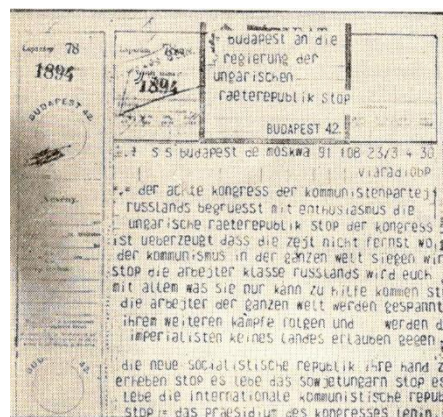 78
1894
BUDAPEST 42.
Növény.
1894
budapest an die
regierung der
ungarischen
raeterepublik stop
BUDAPEST 42.
s s budapest de moskwa 91 108 23/3 4 30
viaradiobp
= der achte kongress der kommunistenpartej
russlands begruesst mit enthusiasmus die
ungarische raeterepublik stop der kongress
ist ueberzeugt dass die zejt nicht fernst wo
der kommunismus in der ganzen welt siegen wir
stop die arbejter klasse russlands wird euch
mit allem was sie nur kann zu hilfe kommen st
die arbejter der ganzen welt werden gespannt
ihrem weiteren kampfe folgen und werden d
imperialisten keines landes erlauben gegen
die neue socialistische republik ihre hand z
erheben stop es lebe das sowjetungarn stop es
lebe die internationale kommunistische repub
stop = das praesidium des kongresses lenin